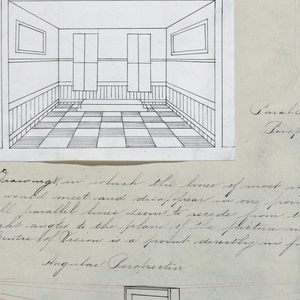 Parall
Persp
Drawing, in which the lines of most
would meet and disappear in one poin
ll parallel lines seem to recede from t
ght angles to the plane of the picture
Centre of Vision is a point directly in f
Angular Perspective